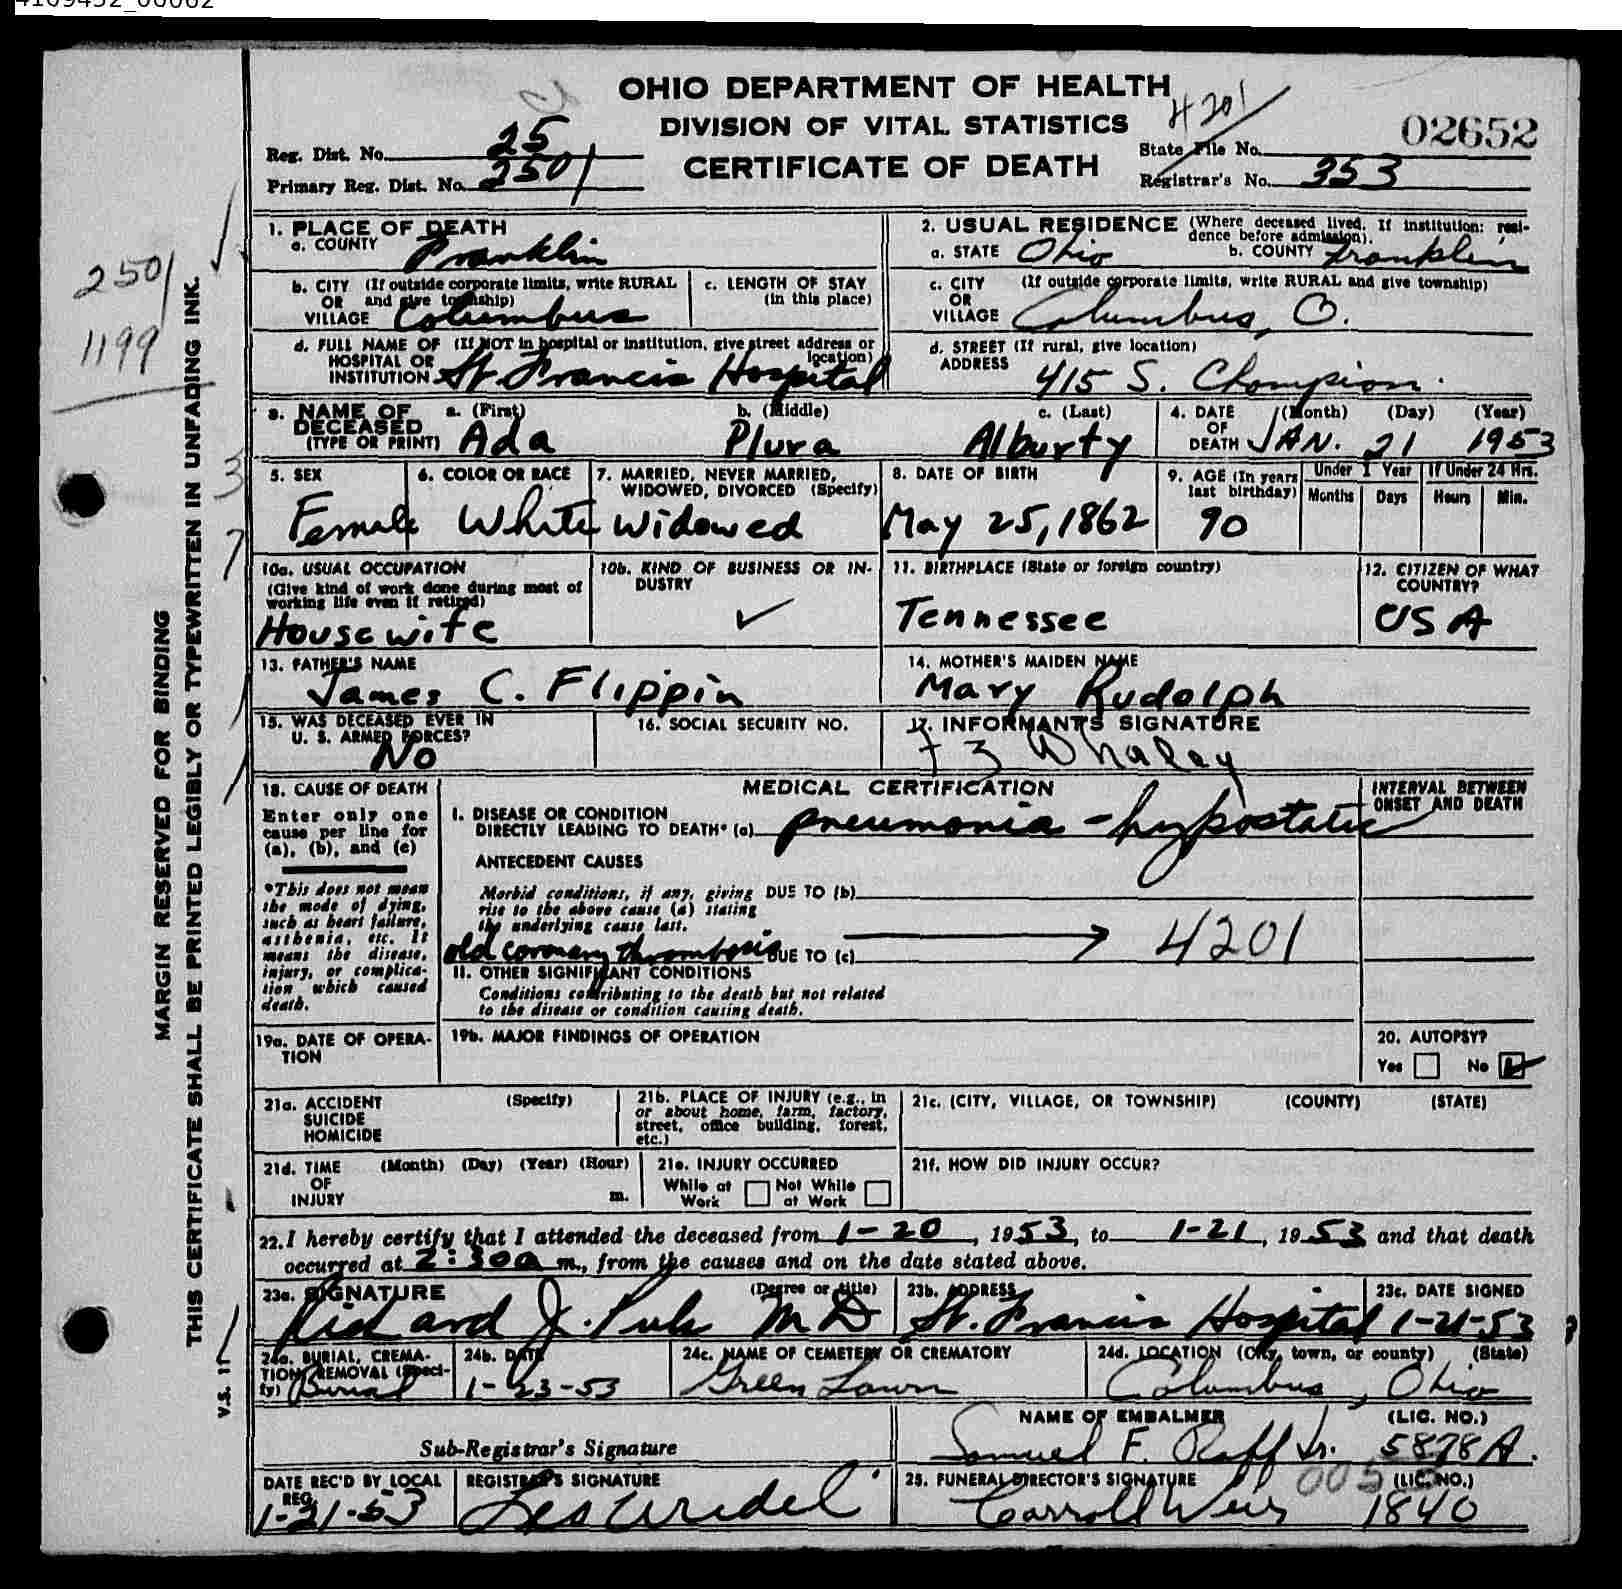 4109452_00062
OHIO DEPARTMENT OF HEALTH
DIVISION OF VITAL STATISTICS
CERTIFICATE OF DEATH
4201
02652
Reg. Dist. No. 25
Primary Reg. Dist. No. 2501
State File No.
Registrar's No. 353
2501
1199
MARGIN RESERVED FOR BINDING
THIS CERTIFICATE SHALL BE PRINTED LEGIBLY OR TYPEWRITTEN IN UNFADING INK.
V.S. 11
1. PLACE OF DEATH
a. COUNTY Franklin
2. USUAL RESIDENCE (Where deceased lived. If institution: residence before admission).
a. STATE Ohio b. COUNTY Franklin
b. CITY (If outside corporate limits, write RURAL
OR and give township)
VILLAGE Columbus
c. LENGTH OF STAY
(in this place)
c. CITY (If outside corporate limits, write RURAL and give township)
OR
VILLAGE Columbus, O.
d. FULL NAME OF (If NOT in hospital or institution, give street address or location)
HOSPITAL OR
INSTITUTION St. Francis Hospital
d. STREET (If rural, give location)
ADDRESS 415 S. Champion
3. NAME OF DECEASED
(TYPE OR PRINT)
a. (First) Ada
b. (Middle) Plura
c. (Last) Alburty
4. DATE OF DEATH (Month) (Day) (Year)
JAN. 21 1953
5. SEX
Female
6. COLOR OR RACE
White
7. MARRIED, NEVER MARRIED, WIDOWED, DIVORCED (Specify)
Widowed
8. DATE OF BIRTH
May 25, 1862
9. AGE (In years last birthday)
90
Under 1 Year
Months Days
If Under 24 Hrs.
Hours Min.
10a. USUAL OCCUPATION
(Give kind of work done during most of working life even if retired)
Housewife
10b. KIND OF BUSINESS OR INDUSTRY
✓
11. BIRTHPLACE (State or foreign country)
Tennessee
12. CITIZEN OF WHAT COUNTRY?
USA
13. FATHER'S NAME
James C. Flippin
14. MOTHER'S MAIDEN NAME
Mary Rudolph
15. WAS DECEASED EVER IN U. S. ARMED FORCES?
No
16. SOCIAL SECURITY NO.
17. INFORMANT'S SIGNATURE
Whaley
18. CAUSE OF DEATH
Enter only one cause per line for (a), (b), and (c)
*This does not mean the mode of dying, such as heart failure, asthenia, etc. It means the disease, injury, or complication which caused death.
MEDICAL CERTIFICATION
INTERVAL BETWEEN ONSET AND DEATH
I. DISEASE OR CONDITION
DIRECTLY LEADING TO DEATH* (a) pneumonia - hypostatic
ANTECEDENT CAUSES
Morbid conditions, if any, giving rise to the above cause (a) stating the underlying cause last.
DUE TO (b)
old coronary thrombosis DUE TO (c) 4201
II. OTHER SIGNIFICANT CONDITIONS
Conditions contributing to the death but not related to the disease or condition causing death.
19a. DATE OF OPERATION
19b. MAJOR FINDINGS OF OPERATION
20. AUTOPSY?
Yes No
21a. ACCIDENT SUICIDE HOMICIDE (Specify)
21b. PLACE OF INJURY (e.g., in or about home, farm, factory, street, office building, forest, etc.)
21c. (CITY, VILLAGE, OR TOWNSHIP) (COUNTY) (STATE)
21d. TIME OF INJURY (Month) (Day) (Year) (Hour) m.
21e. INJURY OCCURRED
While at Work Not While at Work
21f. HOW DID INJURY OCCUR?
22. I hereby certify that I attended the deceased from 1-20, 1953, to 1-21, 1953 and that death
occurred at 2:30a m., from the causes and on the date stated above.
23a. SIGNATURE (Degree or title)
Richard J. MD
23b. ADDRESS
St. Francis Hospital
23c. DATE SIGNED
1-21-53
24a. BURIAL, CREMATION, REMOVAL (Specify)
Burial
24b. DATE
1-23-53
24c. NAME OF CEMETERY OR CREMATORY
Green Lawn
24d. LOCATION (City, town, or county) (State)
Columbus, Ohio
Sub-Registrar's Signature
NAME OF EMBALMER (LIC. NO.)
Samuel F. Raff Jr. 5878A.
DATE REC'D BY LOCAL REG.
1-21-53
REGISTRAR'S SIGNATURE
25. FUNERAL DIRECTOR'S SIGNATURE (LIC. NO.)
Carroll Weir 1840